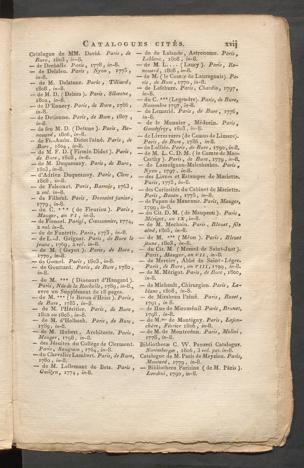 CATALOGUES CITÉS. xvij
Catalogue de MM. David. Paris, de
Bure, 1803, in-8.
— de Delaleu. Paris, Nyon, 1775,
in-8.
— de M. Delatour. Paris, Tilliard,
1808, in-8.
— de M. D. (Delatre) Paris, Silvestre,
in-8.
— de D'Ennery. Paris, de Bure, 1786,
in-8.
— de Detienne. Paris, de Bure, 1807,
in-8.
— de feu M. D. (Detune). Paris, Re-
nouard, 1806, in-8.
— de Fr.-Ambr. Didot l'aîné. Paris, de
Bure, 1804, in-8.
— de M. F. D. (Firmin Didot). Paris,
de Bure, 1808, in-8.
— de M. Duquesnoy. Paris, de Bure,
1803, in-8.
— d'Adrien Duquesnoy. Paris,
1808, in-8.
— de Falconet. Paris, Barrois, 1763,
2 vol. in-8.
— de Villebril. Paris, Dessaint junior,
1779, in-8.
— de C. *** (de Fleurieu). Paris,
Mauger, an VI, in-8.
— de Floncel. Parigi, Cressonnier, 1774,
2 vol. in-8.
— de de Fontette. Paris, 1773, in-8.
— de L.-J. Goignat. Paris, de Bure le
jeune, 1769, 2 vol. in-8.
— de M. l. (Goyon). Paris, de Bure,
1770, in-8.
— du Gomel. Paris, 1803, in-8.
— de Gouttard. Paris, de Bure, 1780,
in-8.
— de M. *** (Disconst d'Hangard).
Paris, Née de la Rochelle, 1789, in-8,
avec un Supplément de 18 pages.
— de M. *** (le Baron d'Heiss). Paris,
de Bure, 1785, in-8.
— de M. l'Héritier. Paris, de Bure,
1802 ou 1805, in-8.
— de M. d'Holbach. Paris, de Bure,
1789, in-8.
— de M. Hubert, Architecte. Paris,
Mauger, 1798, in-8.
— des Jésuites du Collége de Clermont.
Paris, Saugrain, 1764, in-8.
— du Chevalier Lambert. Paris, de Bure,
1780, in-8.
— de M. Lallemant de Betz. Paris,
Guillyn, 1774, in-8.
— de de Lalande, Astronome. Paris,
Leblanc, 1808, in-8.
— de M. L.... (Lamy). Paris, Re-
nouard, 1808, in-8.
— de M. (le Comte de Lauraguais). Pa-
ris, de Bure, 1770, in-8.
— de Lefebure. Paris, Chardin, 1797,
in-8.
— de C. *** (Legendre). Paris, de Bure,
Novembre 1797, in-8.
— de Lemarié. Paris, de Bure, 1776,
in-8.
— de le Monnier, Médecin. Paris,
Gaudefroy, 1803, in-8.
— de Livres rares (du Comte de Limare).
Paris, de Bure, 1786, in-8.
— de Lolliée. Paris, de Bure, 1790, in-8.
— de M. L. C. D. M. (le Comte de Mac-
Carthy). Paris, de Bure, 1779, in-8.
— de Lamoignon-Malesherbes. Paris,
Nyon, 1797.
— des Livres et Estampes de Mariette.
Paris, 1775, in-8.
— des Curiosités du Cabinet de Mariette.
Paris, Basan, 1775, in-8.
— de Papon de Manemme. Paris, Mauger,
1799, in-8.
— du Cit. D. M. (de Maugerot). Paris,
Mérigot, an IX, in-8.
— de M. Mechain. Paris, Bleuet, fils
aîné, 1805, in-8.
— de M. *** (Méon). Paris, Bleuet
jeune, 1803, in-8.
— du Cit. M. (Mercel de Saint-Just).
Paris, Mauger, an VII, in-8.
— de Mercier, Abbé de Saint-Léger.
Paris, de Bure, an VIII, 1799, in-8.
— de M. Mérigot. Paris, de Bure, 1800,
in-8.
— de Michault, Chirurgien. Paris, Le-
blanc, 1808, in-8.
— de Mirabeau l'aîné. Paris, Rozet,
1791, in-8.
— de Bon de Miromesnil. Paris, Brunet,
1798, in-8.
— de M.*** de Montigny. Paris, Lejeu-
cheu, Février 1806, in-8.
— de M. de Montredon. Paris, Molini,
1776, in-8.
Bibliotheca C. W. Panzeri Catalogus.
Norimbergae, 1806, 3 vol. pet. in-8.
Catalogue de M. Paris de Meyzieu. Paris,
Moutard, 1779, in-8.
— Bibliotheca Parisina (de M. Pâris).
Londini, 1790, in-8.